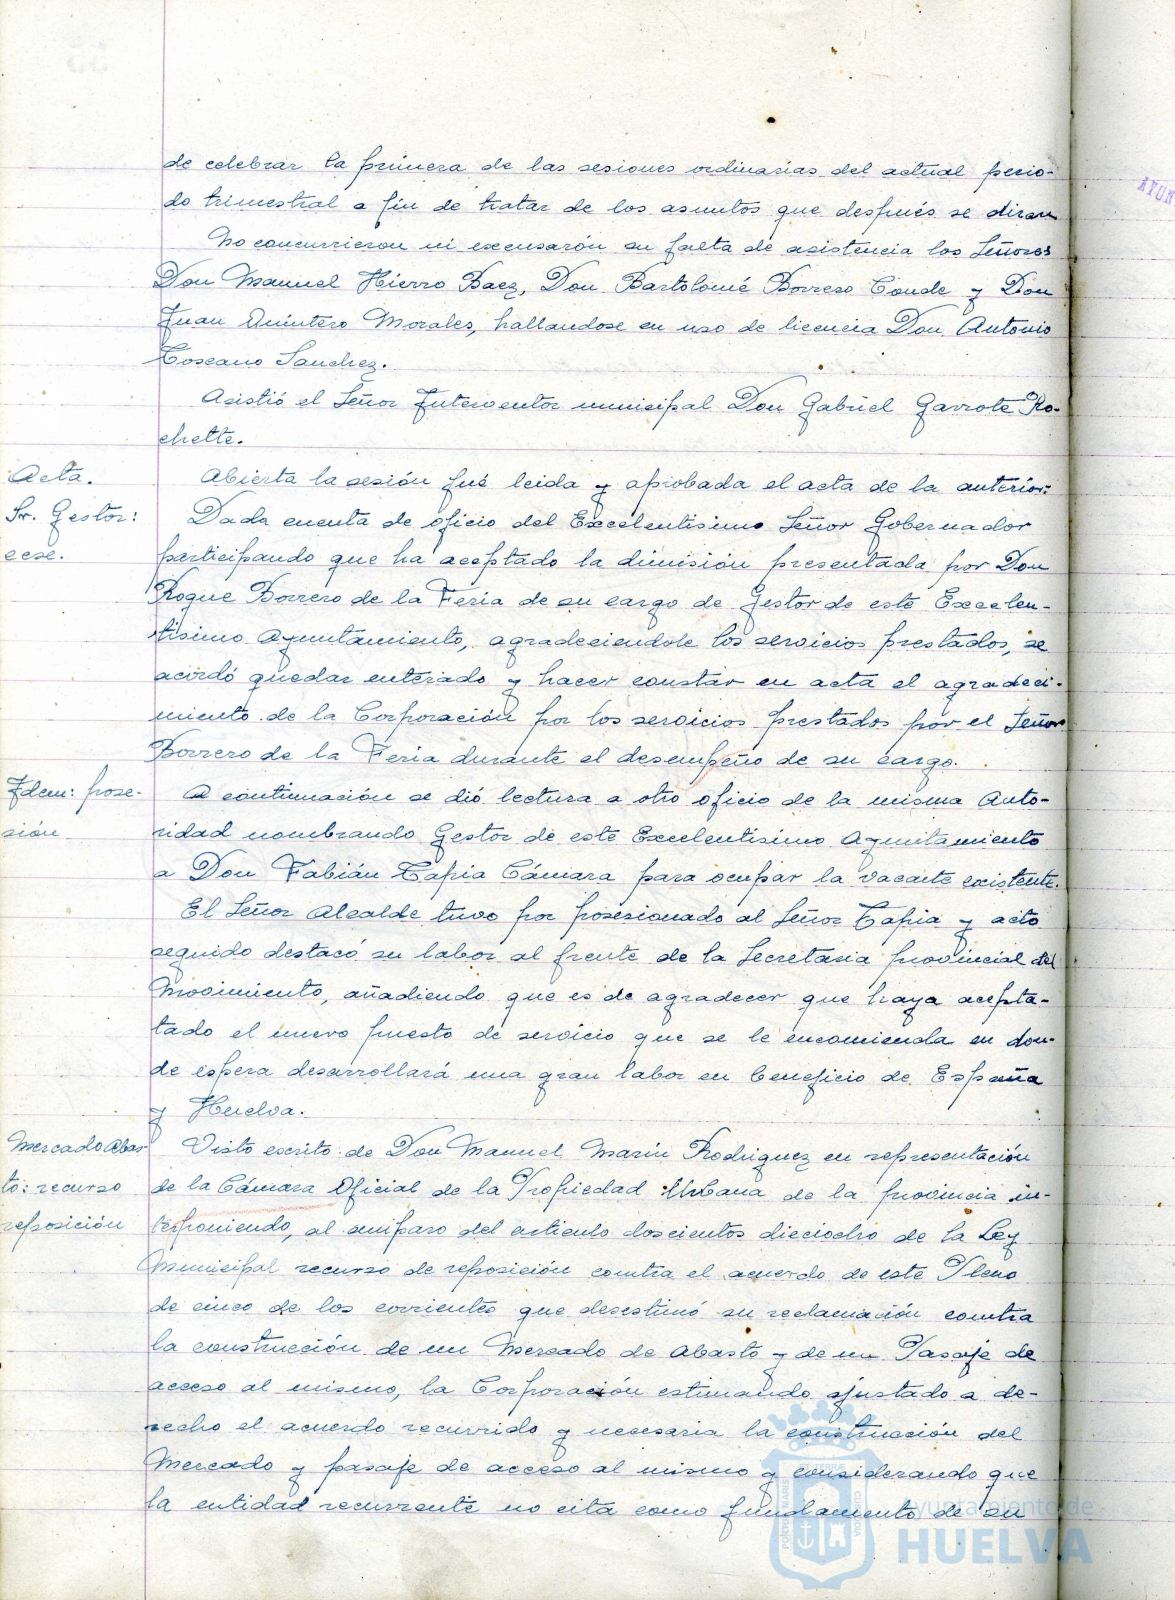 de celebrar la primera de las sesiones ordinarias del actual perio-
do trimestral a fin de tratar de los asuntos que después se diran
No concurrieron ni excusarón su falta de asistencia los Señores
Don Manuel Hierro Baez, Don Bartolomé Borrero Conde y Don
Juan Quintero Morales, hallandose en uso de licencia Don Antonio
Toscano Sanchez.
Asistió el Señor Interventor municipal Don Gabriel Garrote Ro-
chette.
Acta.
Abierta la sesión fué leida y aprobada el acta de la anterior.
Sr. Gestor:
cese.
Dada cuenta de oficio del Excelentisimo Señor Gobernador
participando que ha aceptado la dimisión presentada por Don
Roque Borrero de la Feria de su cargo de Gestor de este Excelen-
tisimo Ayuntamiento, agradeciendole los servicios prestados, se
acordó quedar enterado y hacer constar en acta el agradeci-
miento de la Corporación por los servicios prestados por el Señor
Borrero de la Feria durante el desempeño de su cargo.
Idem: pose-
sión
A continuación se dió lectura a otro oficio de la misma Auto-
ridad nombrando Gestor de este Excelentisimo Ayuntamiento
a Don Fabián Tapia Cámara para ocupar la vacante existente.
El Señor Alcalde tuvo por posesionado al Señor Tapia y acto
seguido destacó su labor al frente de la Secretaria provincial del
Movimiento, añadiendo que es de agradecer que haya acepta-
tado el nuevo puesto de servicio que se le encomienda en don-
de espera desarrollará una gran labor en beneficio de España
y Huelva.
Mercado Abas-
to: recurso
reposición
Visto escrito de Don Manuel Marin Rodriguez en representación
de la Cámara Oficial de la Propiedad Urbana de la provincia in-
terponiendo, al amparo del articulo doscientos dieciocho de la Ley
Municipal recurso de reposición contra el acuerdo de este Pleno
de cinco de los corrientes que desestimó su reclamación contra
la construcción de un Mercado de Abasto y de un Pasaje de
acceso al mismo, la Corporación estimando ajustado a de-
recho el acuerdo recurrido y necesaria la construcción del
Mercado y pasaje de acceso al mismo y considerando que
la entidad recurrente no cita como fundamento de su
Ayuntamiento de
HUELVA